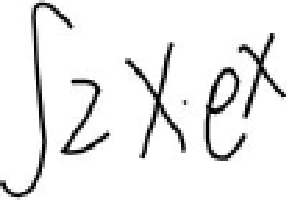 ∫2x·eˣ